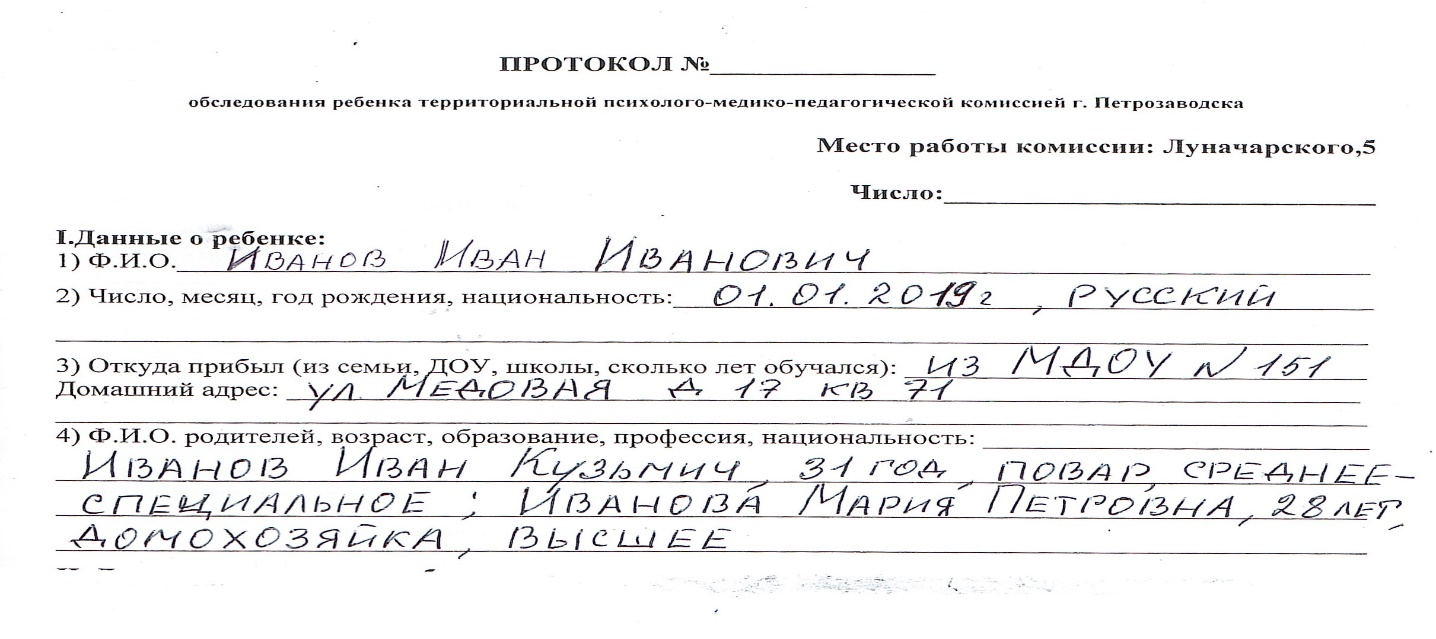 ПРОТОКОЛ №_______________
обследования ребенка территориальной психолого-медико-педагогической комиссией г. Петрозаводска
Место работы комиссии: Луначарского,5
Число:_______________
I.Данные о ребенке:
1) Ф.И.О. Иванов Иван Иванович
2) Число, месяц, год рождения, национальность: 01.01.2019г, русский
3) Откуда прибыл (из семьи, ДОУ, школы, сколько лет обучался): из МДОУ N 151
Домашний адрес: ул Медовая д 17 кв 71
4) Ф.И.О. родителей, возраст, образование, профессия, национальность:
Иванов Иван Кузьмич, 31 год, повар, среднее-
специальное; Иванова Мария Петровна, 28 лет,
домохозяйка, высшее